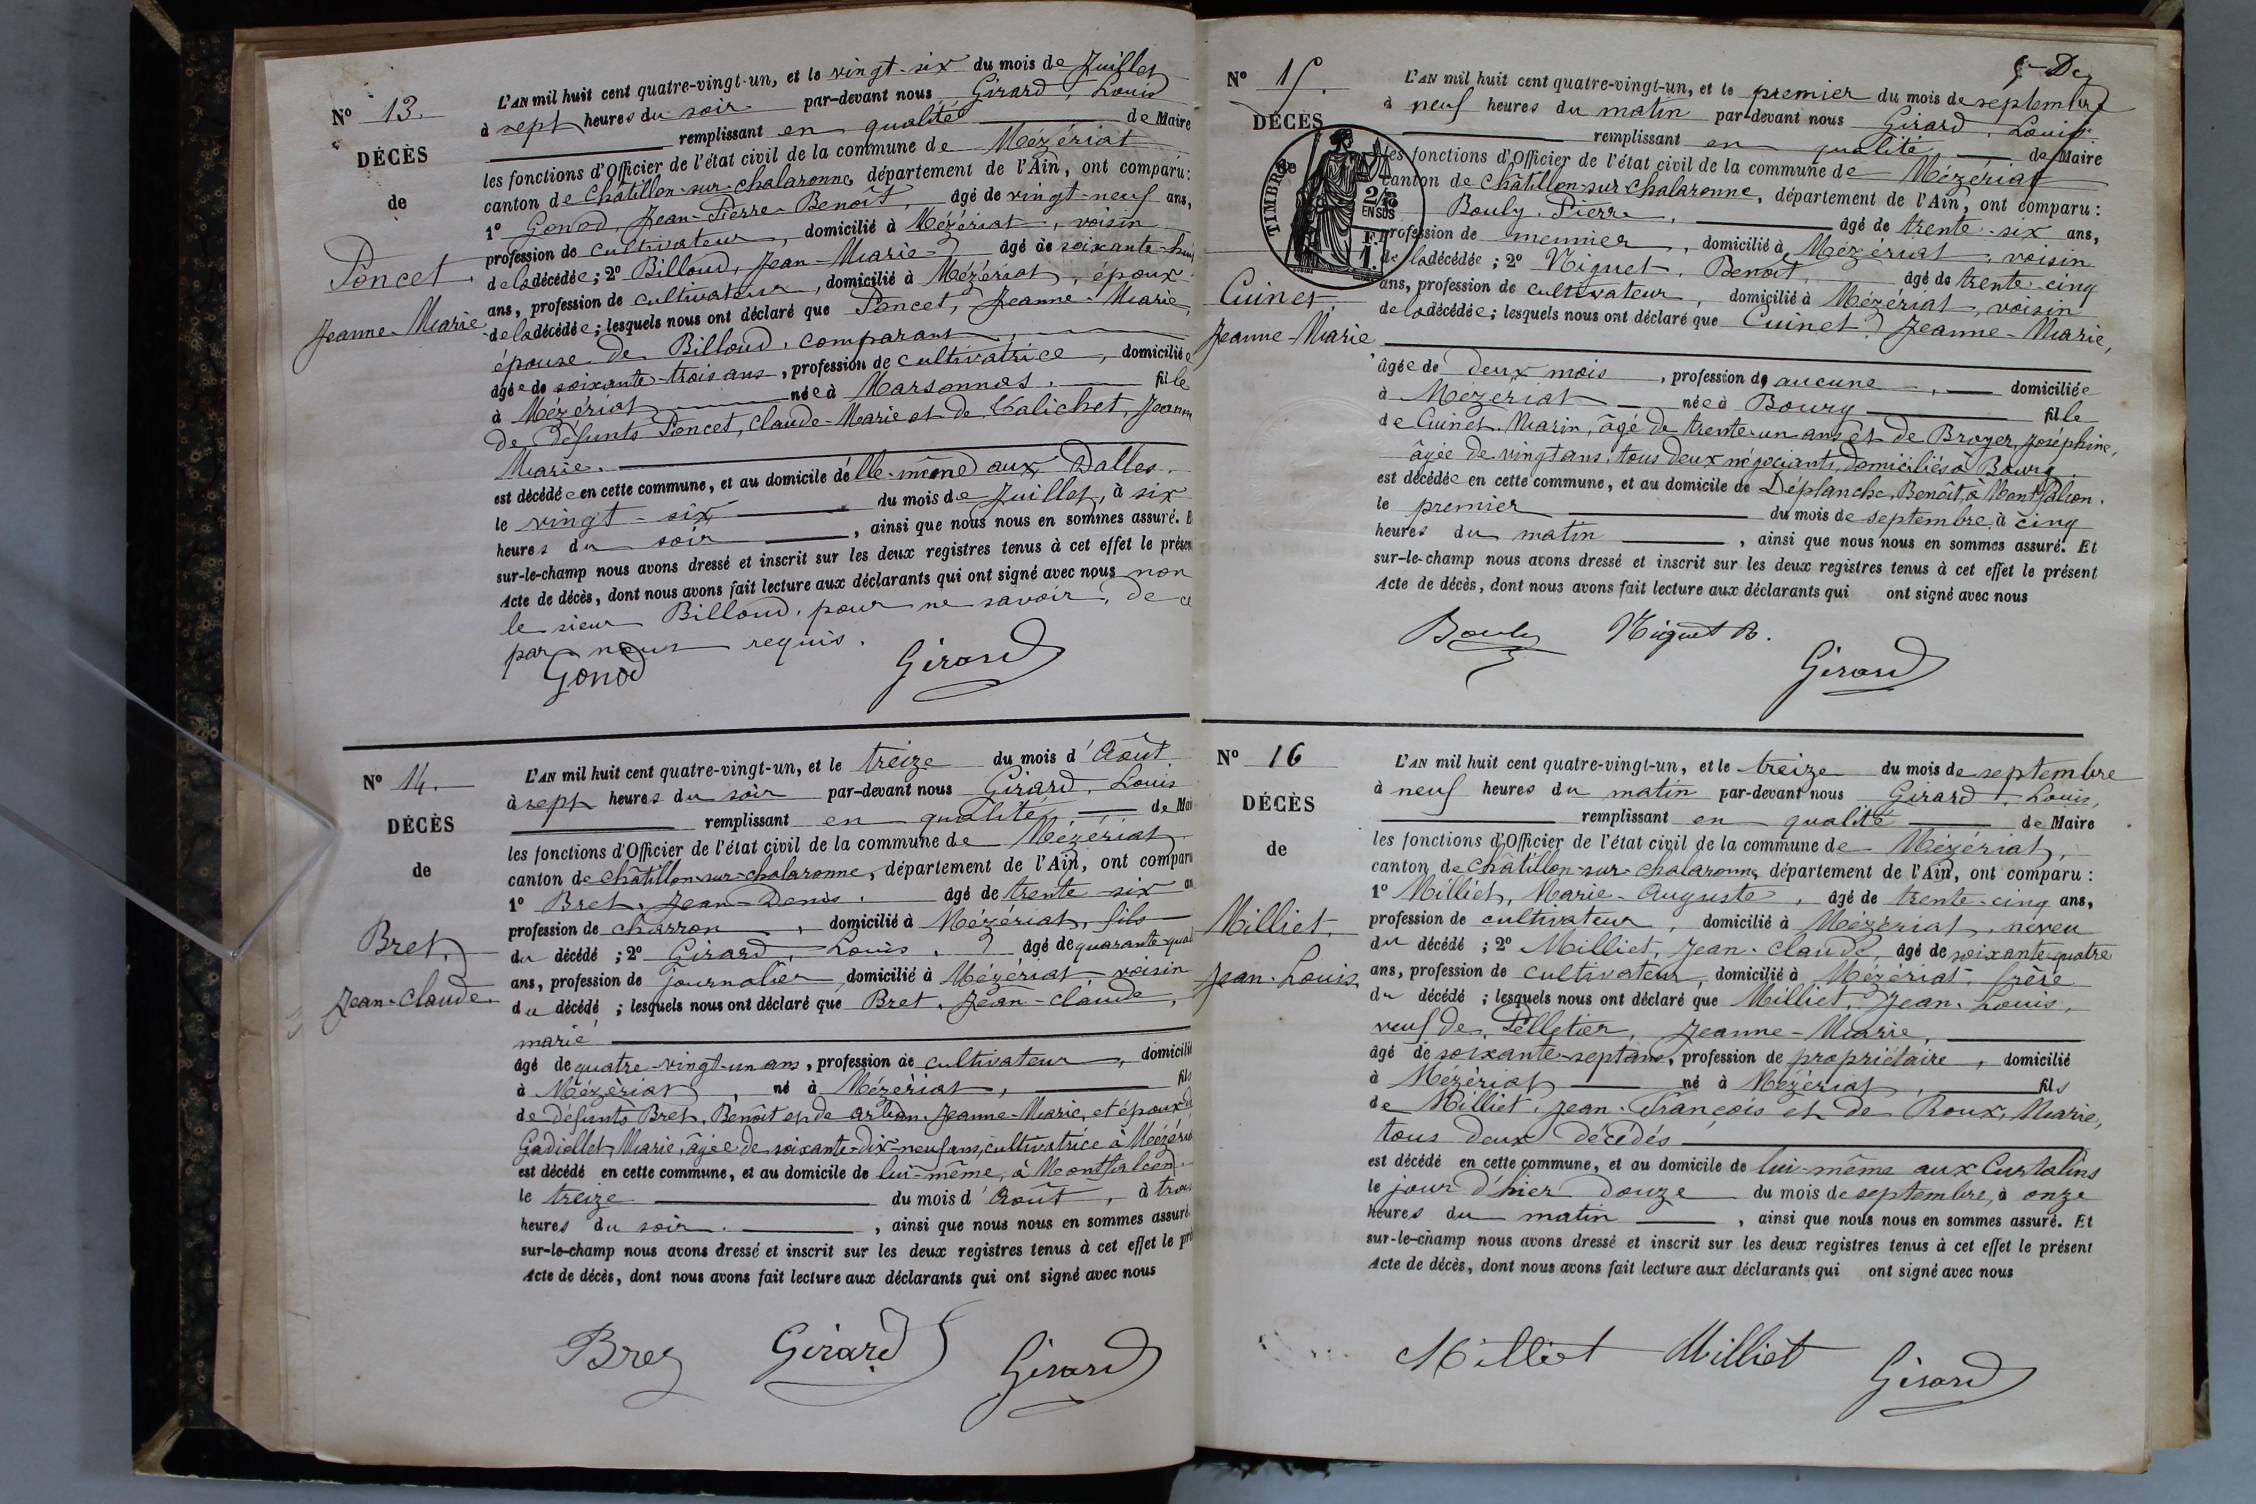 N° 13.
DÉCÈS
de
Poncet
Jeanne-Marie
L'AN mil huit cent quatre-vingt-un, et le vingt-six du mois de Juillet
à sept heures du soir par-devant nous Girard, Louis
remplissant en qualité de Maire
les fonctions d'Officier de l'état civil de la commune de Mézériat
canton de Châtillon-sur-chalaronne, département de l'Ain, ont comparu :
1° Gonod, Jean-Pierre-Benoît, âgé de vingt-neuf ans,
profession de cultivateur, domicilié à Mézériat, voisin
de la décédée ; 2° Billoud, Jean-Marie âgé de soixante-hui
ans, profession de cultivateur, domicilié à Mézériat, époux
de la décédée ; lesquels nous ont déclaré que Poncet, Jeanne-Marie,
épouse de Billoud, comparant,
âgée de soixante-trois ans, profession de cultivatrice, domiciliée
à Mézériat née à Marsonnas, fille
de défunts Poncet, Claude-Marie et de Jeanne
Marie.
est décédée en cette commune, et au domicile d'elle-même aux Dalles.
le vingt-six du mois de Juillet, à six
heures du soir, ainsi que nous nous en sommes assuré. E
sur-le-champ nous avons dressé et inscrit sur les deux registres tenus à cet effet le présen
Acte de décès, dont nous avons fait lecture aux déclarants qui ont signé avec nous non
le sieur Billoud, pour ne savoir, de ce
par nous requis.
Gonod Girard
N° 14.
DÉCÈS
de
Bret,
Jean-Claude.
L'AN mil huit cent quatre-vingt-un, et le treize du mois d'Août
à sept heures du soir par-devant nous Girard, Louis
remplissant en qualité de Mai
les fonctions d'Officier de l'état civil de la commune de Mézériat
canton de Châtillon-sur-chalaronne, département de l'Ain, ont comparu
1° Bret, Jean-Denis, âgé de trente-six an
profession de charron, domicilié à Mézériat, fils
du décédé ; 2° Girard, Louis, âgé de quarante-quat
ans, profession de journalier, domicilié à Mézériat voisin
du décédé ; lesquels nous ont déclaré que Bret, Jean-claude,
marié
âgé de quatre-vingt-un ans, profession de cultivateur, domicilié
à Mézériat, né à Mézériat, fils
de défunts Bret, Benoît et de Arban, Jeanne-Marie, et époux de
Gadiollet, Marie, âgée de soixante-dix-neuf ans, cultivatrice à Mézériat
est décédé en cette commune, et au domicile de lui-même, à Montfalcon.
le treize du mois d'Août, à trois
heures du soir, ainsi que nous nous en sommes assuré.
sur-le-champ nous avons dressé et inscrit sur les deux registres tenus à cet effet le pré
Acte de décès, dont nous avons fait lecture aux déclarants qui ont signé avec nous
Bret Girard Girard
N° 15.
DÉCÈS
de
TIMBRE
2/10 EN SUS
F.
1.
Cuinet,
Jeanne-Marie
L'AN mil huit cent quatre-vingt-un, et le premier du mois de septembre
à neuf heures du matin par-devant nous Girard, Louis
remplissant en qualité de Maire
les fonctions d'Officier de l'état civil de la commune de Mézériat
canton de Châtillon-sur-chalaronne, département de l'Ain, ont comparu :
Bouly, Pierre, âgé de trente-six ans,
profession de meunier, domicilié à Mézériat, voisin
de la décédée ; 2° Niguet, Benoît, âgé de trente-cinq
ans, profession de cultivateur, domicilié à Mézériat, voisin
de la décédée ; lesquels nous ont déclaré que Cuinet, Jeanne-Marie,
âgée de deux mois, profession de aucune, domiciliée
à Mézériat née à Bourg fille
de Cuinet, Marin, âgé de trente-un ans et de Broyer, Joséphine,
âgée de vingt ans, tous deux négociants, domiciliés à Bourg.
est décédée en cette commune, et au domicile de Déplanche, Benoît, à Montfalcon.
le premier du mois de septembre, à cinq
heures du matin, ainsi que nous nous en sommes assuré. Et
sur-le-champ nous avons dressé et inscrit sur les deux registres tenus à cet effet le présent
Acte de décès, dont nous avons fait lecture aux déclarants qui ont signé avec nous
Bouly Niguet B.
Girard
N° 16
DÉCÈS
de
Milliet,
Jean-Louis,
L'AN mil huit cent quatre-vingt-un, et le treize du mois de septembre
à neuf heures du matin par-devant nous Girard, Louis,
remplissant en qualité de Maire
les fonctions d'Officier de l'état civil de la commune de Mézériat,
canton de Châtillon-sur-chalaronne, département de l'Ain, ont comparu :
1° Milliet, Marie-Auguste, âgé de trente-cinq ans,
profession de cultivateur, domicilié à Mézériat, neveu
du décédé ; 2° Milliet, Jean-claude, âgé de soixante-quatre
ans, profession de cultivateur, domicilié à Mézériat, frère
du décédé ; lesquels nous ont déclaré que Milliet, Jean-Louis,
veuf de Pelletier, Jeanne-Marie,
âgé de soixante-sept ans, profession de propriétaire, domicilié
à Mézériat né à Mézériat, fils
de Milliet, Jean-François et de Roux, Marie,
tous deux décédés
est décédé en cette commune, et au domicile de lui-même aux Curtalins
le jour d'hier douze du mois de septembre, à onze
heures du matin, ainsi que nous nous en sommes assuré. Et
sur-le-champ nous avons dressé et inscrit sur les deux registres tenus à cet effet le présent
Acte de décès, dont nous avons fait lecture aux déclarants qui ont signé avec nous
Milliet Milliet Girard